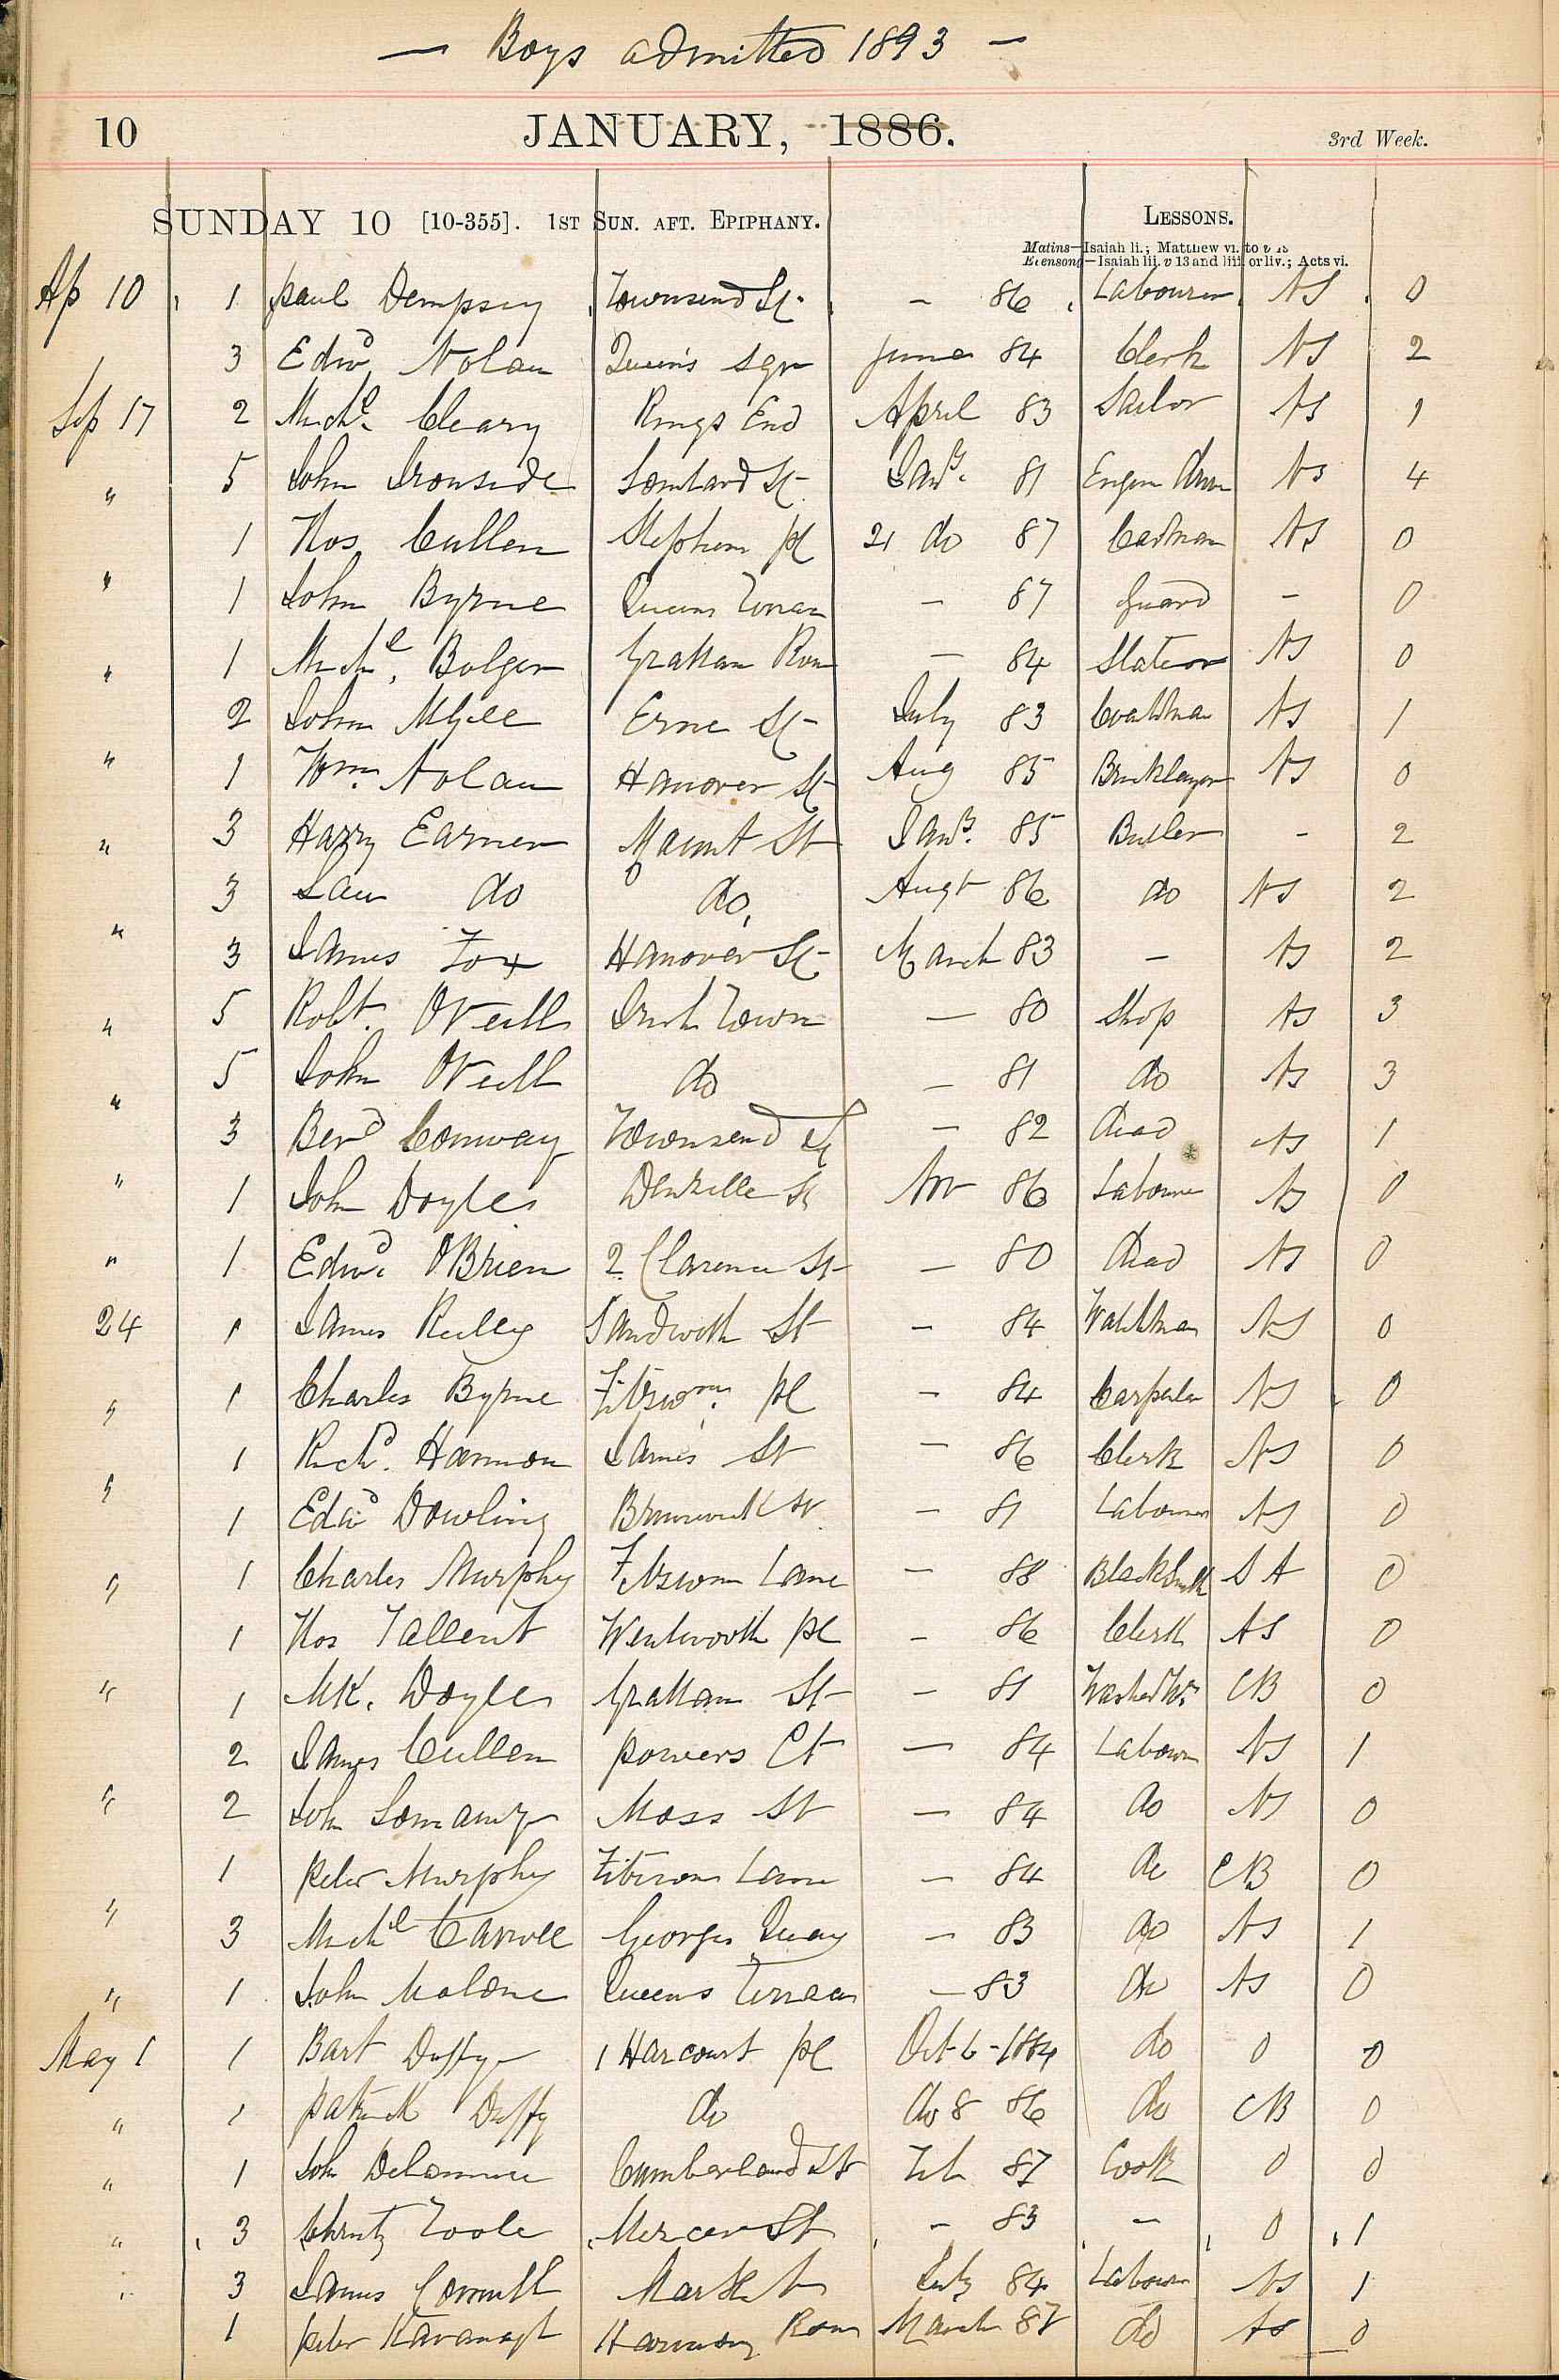 — Boys admitted 1893 —
10 JANUARY, 1886. 3rd Week.
SUNDAY 10 [10-355]. 1ST SUN. AFT. EPIPHANY. LESSONS.
Matins—Isaiah li.; Matthew vi. to v 19
Evensong—Isaiah lii. v 13 and liii. or liv.; Acts vi.
Ap 10 1 Paul Dempsey Townsend St. — 86 Labourer NS 0
3 Edwd Nolan Queen's Sqr June 84 Clerk NS 2
Sep 17 2 Michl Cleary Rings End April 83 Sailor NS 1
" 5 John Ironside Lombard St Jany 81 Engine NS 4
1 Thos Cullen Stephens pl 21 do 87 NS 0
" 1 John Byrne Queens Terrace — 87 Guard — 0
" 1 Michl Bolger Grattan Row — 84 Slater NS 0
2 John McGee Erne St July 83 NS 1
" 1 Wm Nolan Hanover St Aug 85 Bricklayer NS 0
" 3 Harry Earner Mount St Jany 85 Butler — 2
3 Lau do do Augt 86 do NS 2
" 3 James Fox Hanover St March 83 — NS 2
" 5 Robt. ONeill Irish Town — 80 Shop NS 3
" 5 John ONeill do — 81 do NS 3
3 Berd Conway Townsend St — 82 dead NS 1
" 1 John Doyle Denzille St Nov 86 Labourer NS 0
" 1 Edwd OBrien 2 Clarence St — 80 dead NS 0
24 1 James Reilly Sandwith St — 84 Watchman NS 0
" 1 Charles Byrne Fitzwm pl — 84 Carpenter NS 0
" 1 Richd. Harmon James St — 86 Clerk NS 0
1 Edwd Dowling Brunswick St — 81 Labourer NS 0
" 1 Charles Murphy Fitzwm Lane — 88 Blacksmith S A 0
1 Thos Tallent Wentworth pl — 86 Clerk NS 0
" 1 Mk. Doyle Grattan St — 81 CB 0
2 James Cullen Powers Ct — 84 Labourer NS 1
" 2 John Moss St — 84 do NS 0
1 Peter Murphy Fitzwm Lane — 84 do CB 0
" 3 Michl Carroll Georges Quay — 83 do NS 1
" 1 John Malone Queens Terrace — 83 do NS 0
May 1 1 Bart Duffy 1 Harcourt pl Oct 6 - 1884 do 0 0
" 1 Patrick Duffy do do 8 86 do CB 0
" 1 John Delamere Cumberland St Feb 87 Cook 0 0
" 3 Christy Toole Mercer St — 83 — 0 1
" 3 James Mark St July 84 Labourer NS 1
1 Peter Kavanagh Harmony Row March 87 do NS 0